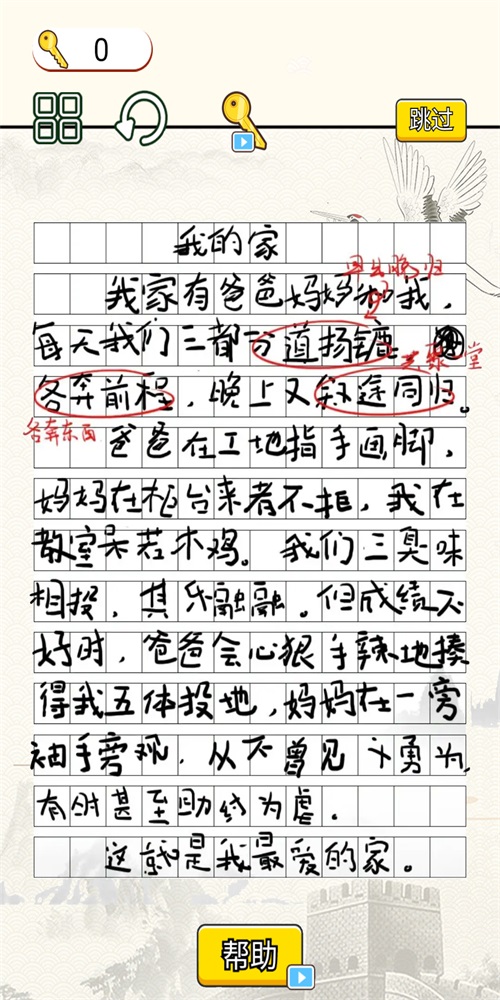 0
跳过
我的家
早出晚归
我家有爸爸妈妈和我，
每天我们三都分道扬镳，
共聚一堂
各奔前程，晚上又殊途同归。
各奔东西
爸爸在工地指手画脚，
妈妈在柜台来者不拒，我在
教室呆若木鸡。我们三臭味
相投，其乐融融。但成绩不
好时，爸爸会心狠手辣地揍
得我五体投地，妈妈在一旁
袖手旁观，从不曾见义勇为，
有时甚至助纣为虐。
这就是我最爱的家。
帮助